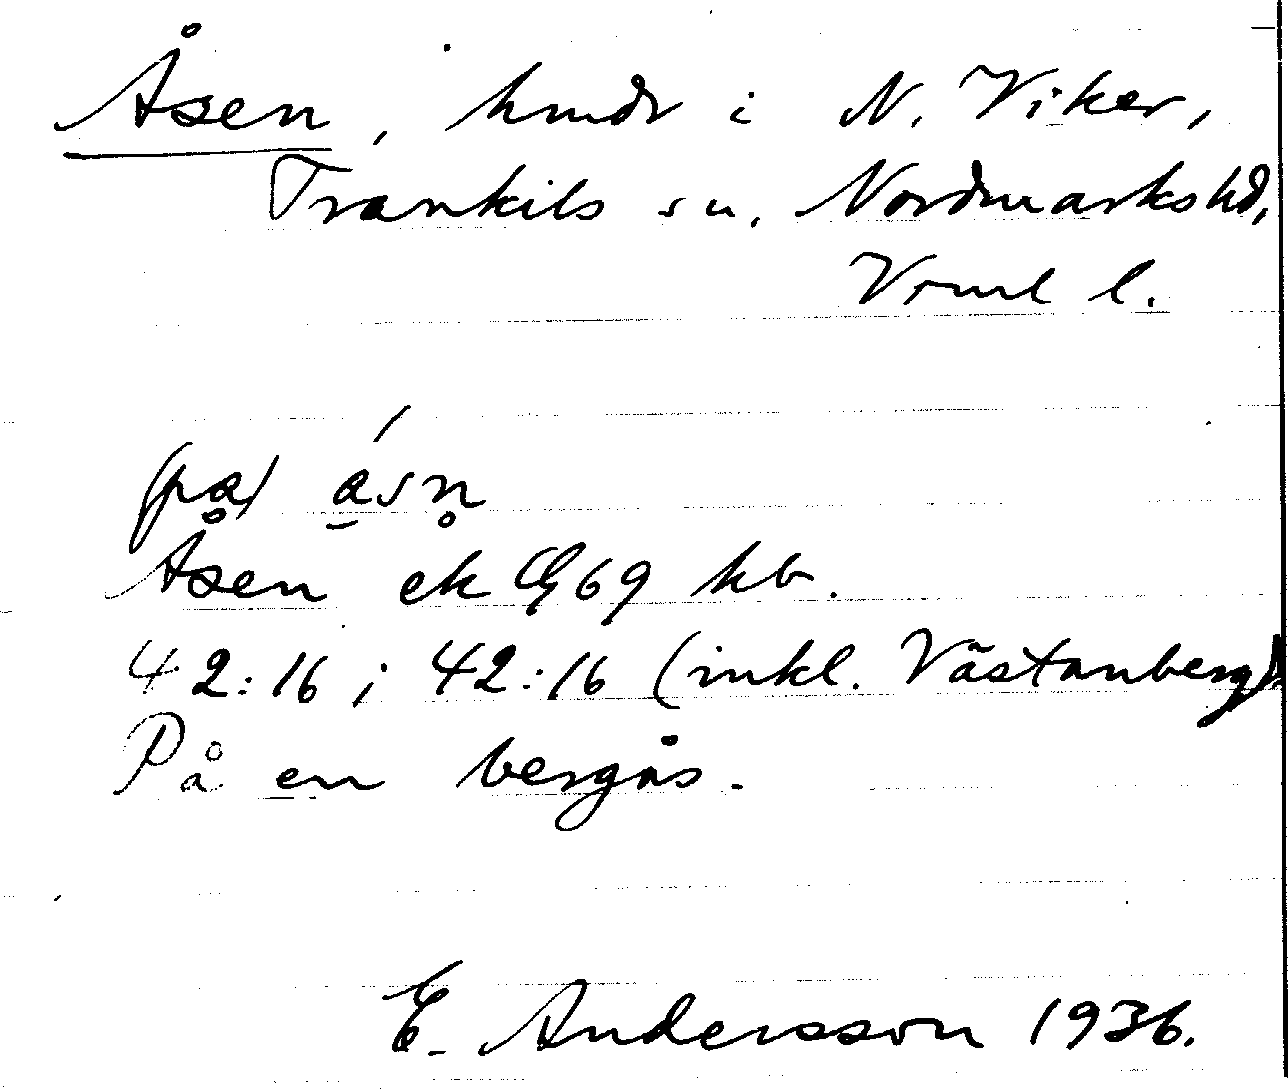 Åsen, hmdr i N. Viker,
Trankils sn, Nordmarks hd,
Vrml l.
(på) ása̱n
Åsen ek G 69 kb.
42:16 ; 42:16 (inkl. Västanberg)
På en bergås.
E. Andersson 1936.